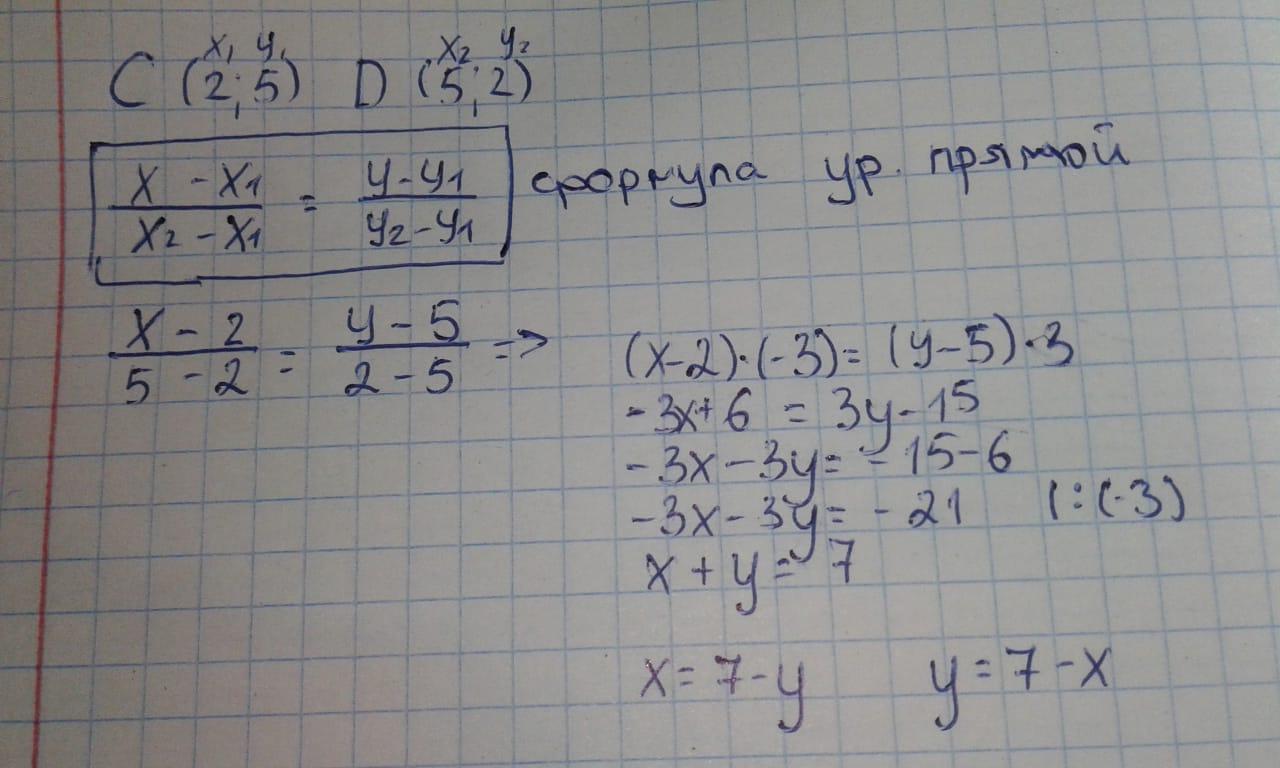 x₁ y₁ x₂ y₂
C (2; 5) D (5; 2)
(x - x₁)/(x₂ - x₁) = (y - y₁)/(y₂ - y₁) формула ур. прямой
(x - 2)/(5 - 2) = (y - 5)/(2 - 5) => (x-2)·(-3) = (y-5)·3
-3x + 6 = 3y - 15
-3x - 3y = -15 - 6
-3x - 3y = -21 |:(-3)
x + y = 7
x = 7 - y y = 7 - x